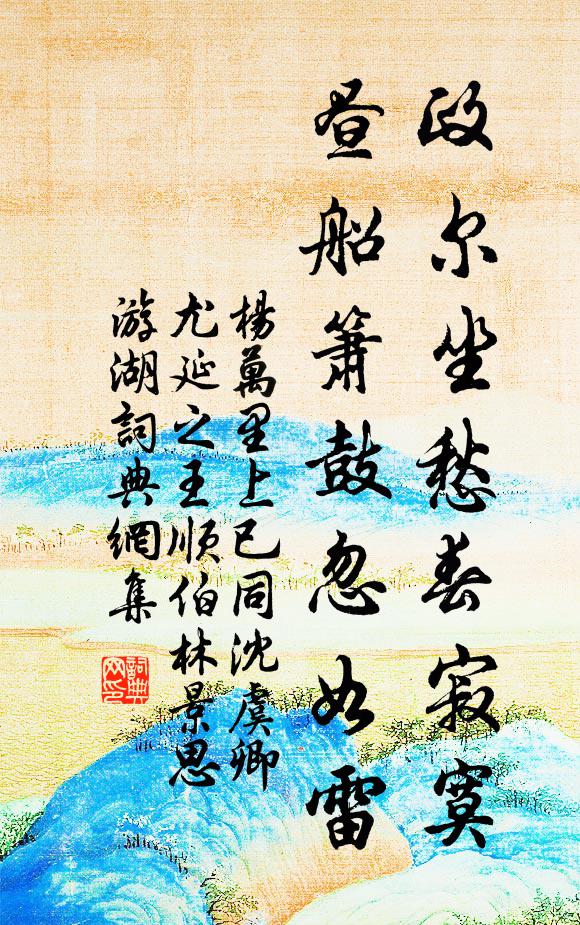 政尔坐愁春寂寞
畫船簫鼓忽如雷
楊萬里上巳同沈虞卿
尤延之王順伯林景思
游湖詞典網集
詞典
网印